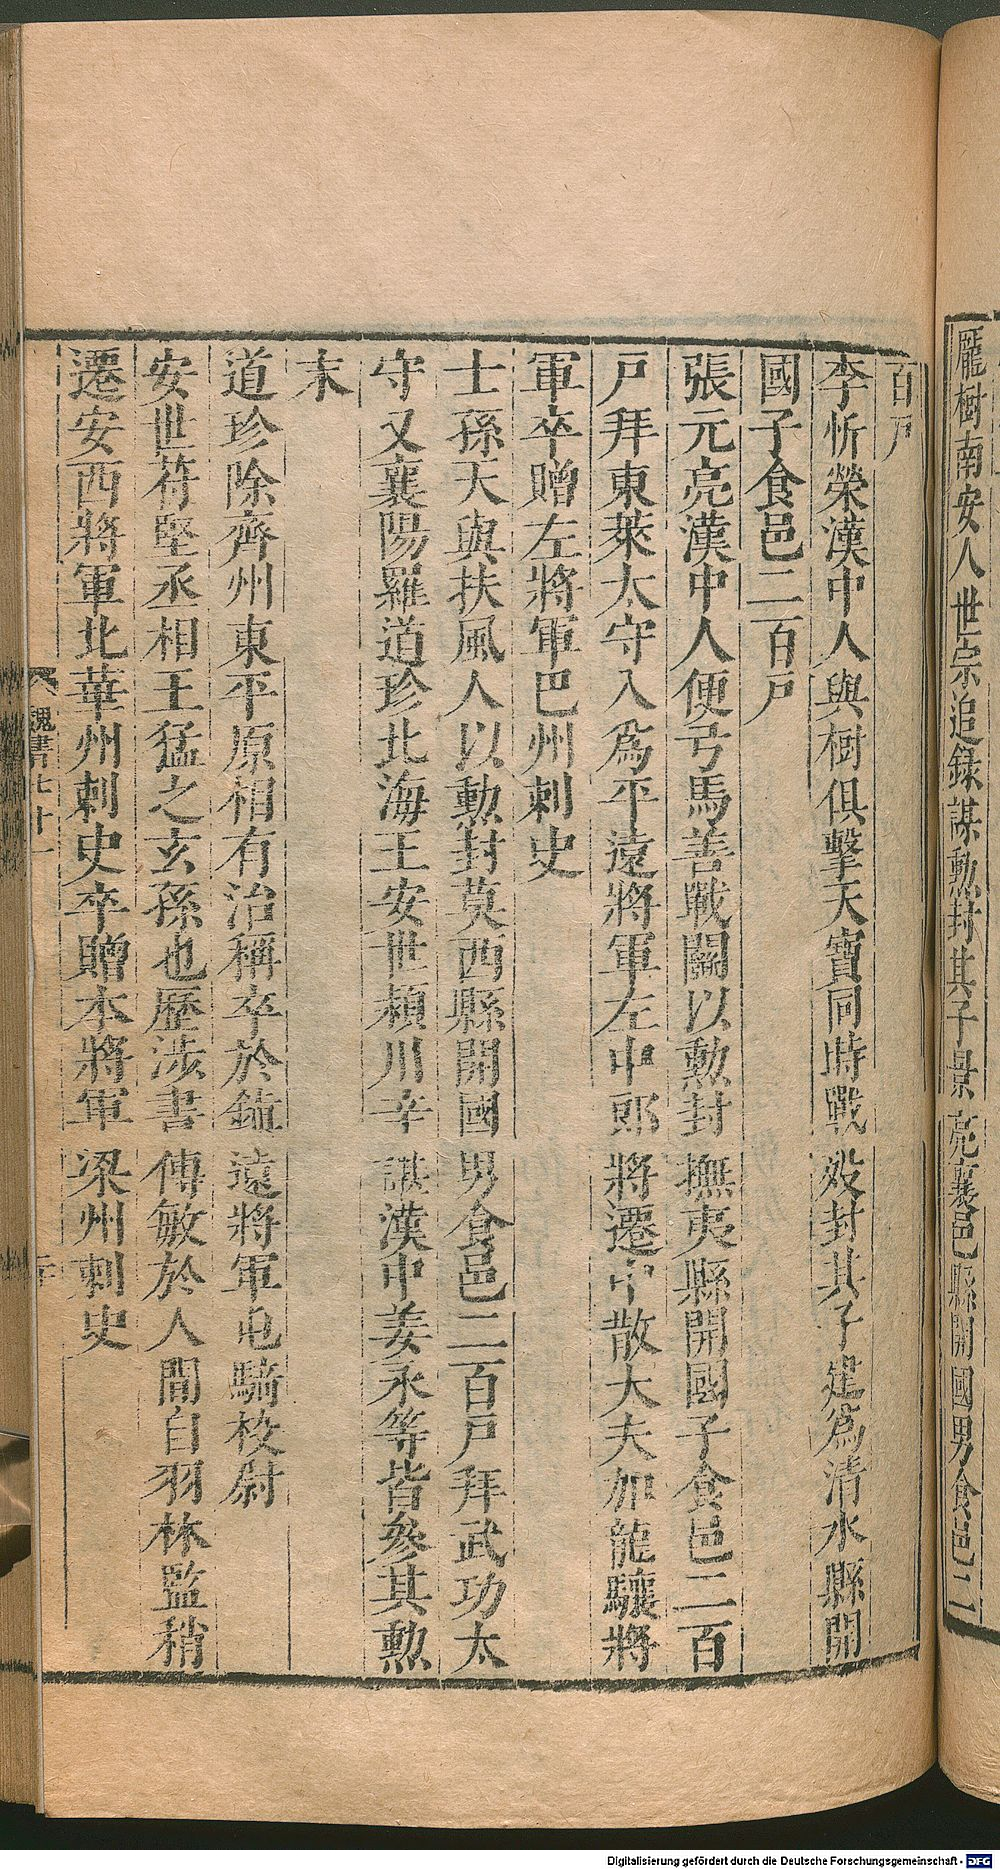 龎樹南安人世宗追錄謀勲封其子景亮襄邑縣開國男食邑二
百戶
李忻榮漢中人與樹俱擊天寶同時戰歿封其子建爲清水縣開
國子食邑二百戶
張元亮漢中人便弓馬善戰鬬以勲封撫夷縣開國子食邑二百
戶拜東萊太守入爲平遠將軍左中郎將遷中散大夫加龍驤將
軍卒贈左將軍巴州刺史
士孫天與扶風人以勲封莫西縣開國男食邑二百戶拜武功太
守又襄陽羅道珍北海王安世潁川辛諶漢中姜永等皆參其勲
末
道珍除齊州東平原相有治稱卒於鎮遠將軍屯騎校尉
安世苻堅丞相王猛之玄孫也歷涉書傳敏於人間自羽林監稍
遷安西將軍北華州刺史卒贈本將軍梁州刺史
魏書七十一
Digitalisierung gefördert durch die Deutsche Forschungsgemeinschaft - DFG